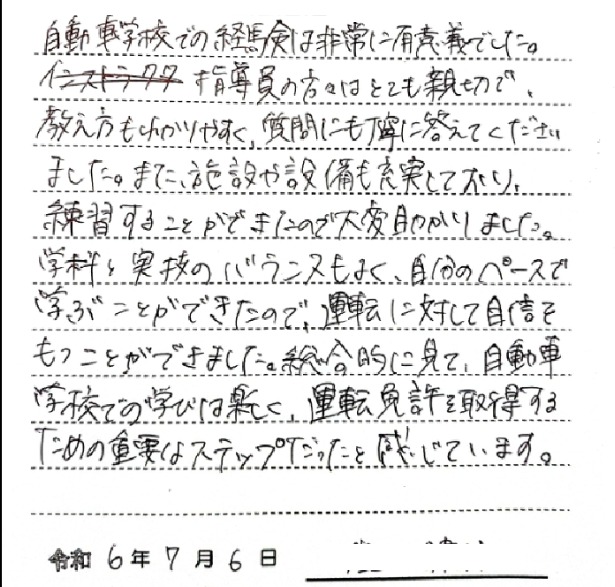 自動車学校での経験は非常に有意義でした。
インストラクタ 指導員の方々はとても親切で、
教え方もわかりやすく、質問にも丁寧に答えてください
ました。また、施設や設備も充実しており、
練習することができたので大変助かりました。
学科と実技のバランスもよく、自分のペースで
学ぶことができたので、運転に対して自信を
もつことができました。総合的に見て、自動車
学校での学びは楽しく、運転免許を取得する
ための重要なステップだったと感じています。
令和 6 年 7 月 6 日